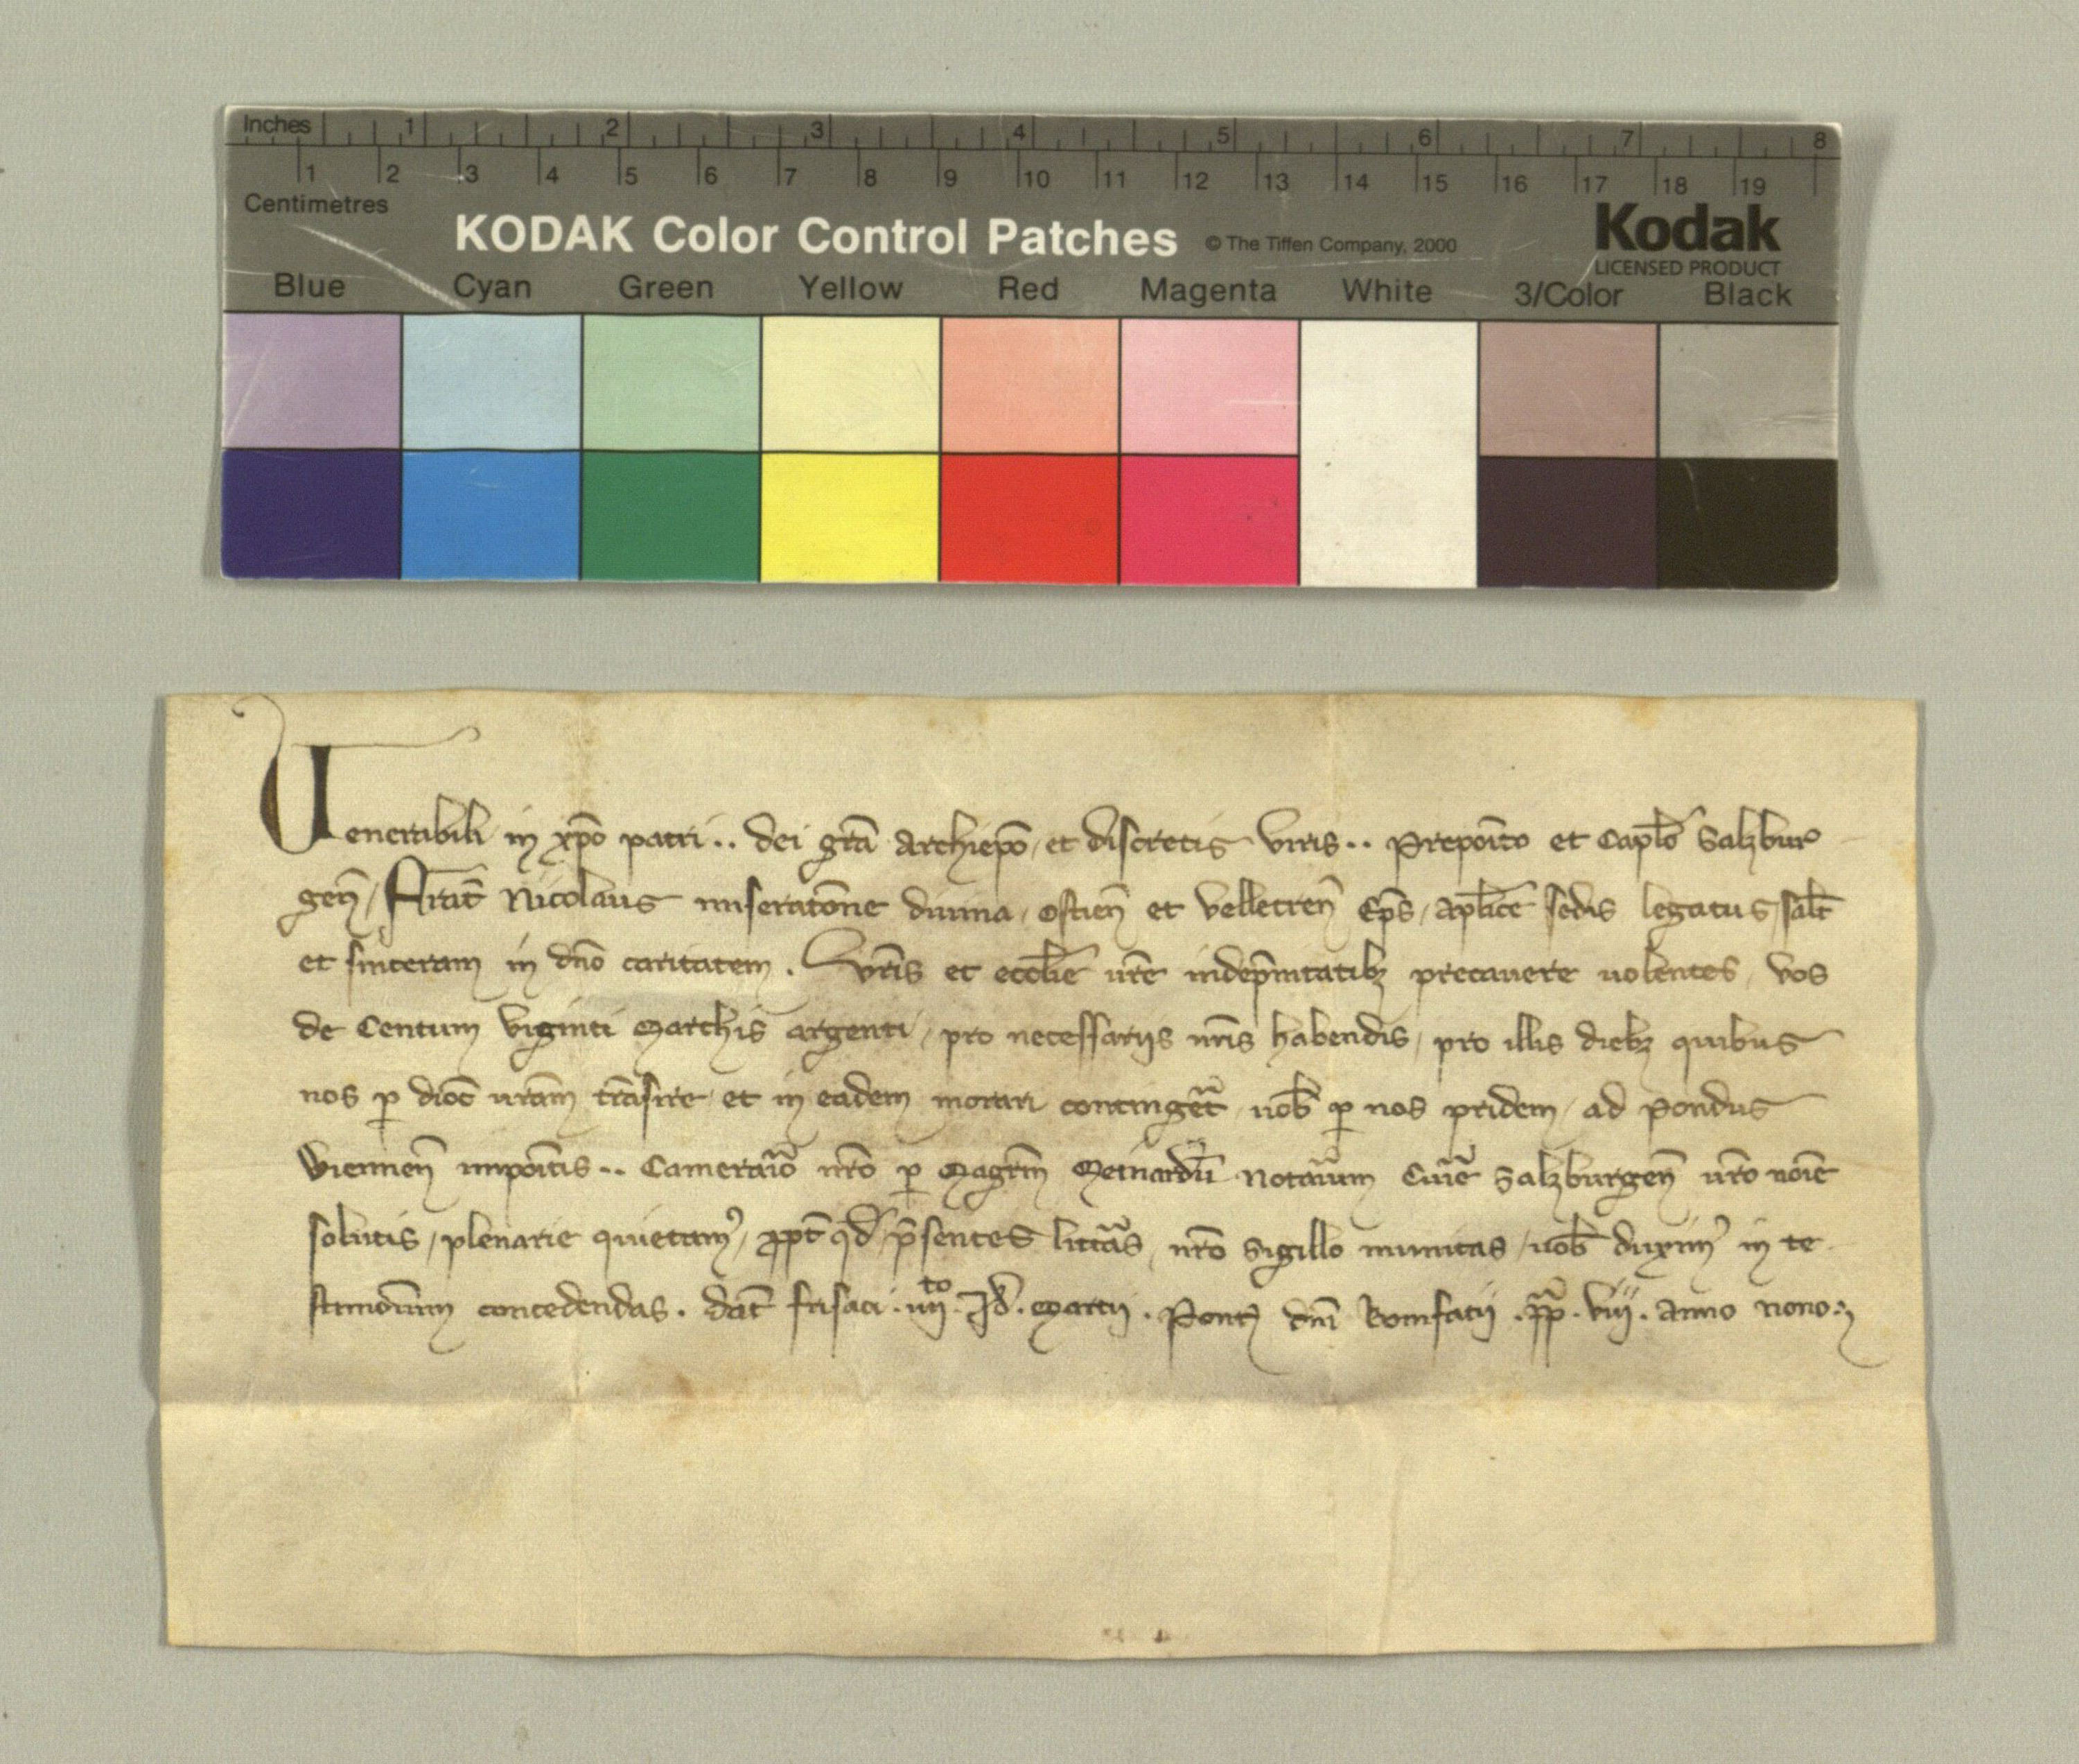 Inches 1 2 3 4 5 6 7 8
1 2 3 4 5 6 7 8 9 10 11 12 13 14 15 16 17 18 19
Centimetres
KODAK Color Control Patches © The Tiffen Company, 2000 Kodak
LICENSED PRODUCT
Blue Cyan Green Yellow Red Magenta White 3/Color Black
Venerabili in xp̄o patri .. dei gr̄a Archiep̄o et discretis viris .. Prepoīto et Caplō Salzbur
gen̄ / Frat̄ Nicolaus miseratōne diuina / Ostien̄ et velletren̄ Ep̄s / aplīce sedis legatus / salt̄
et sinceram in dn̄o caritatem . Vr̄is et eccl̄ie vr̄e indēpnitatibꝫ precauere uolentes / vos
de Centum viginti Marchis argenti / pro necessariis nr̄is habendis / pro illis diebꝫ quibus
nos ꝑ dioc̄ vr̄am trāsire et in eadem morari contingēt uob̄ ꝑ nos pridem / ad pondus
viennen̄ impoītis .. Cameraīo nr̄o ꝑ Magr̄m Meinardū Notar̄ium Ciuīe Salzburgen̄ vr̄o noīe
solutis / plenarie quietamꝰ / ꝓpt̄ qd̄ / p̄sentes litt̄as / nr̄o sigillo munitas / uob̄ duximꝰ in te
stimoīum concedendas . dat̄ frisaci . iiijto . Id̄ . Martij . Pont̄ dn̄i Bonifatii . pp̄ . viij . anno nono